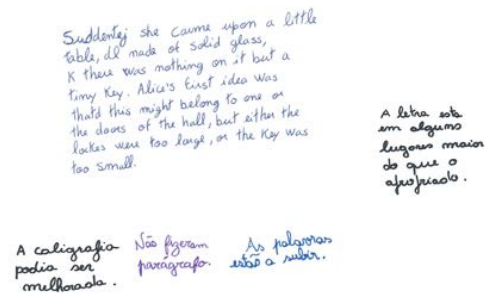 Suddentej she caume upon a little
table, dll made of solid glass,
K theu was nothing on it but a
tiny Key. Alice's Eirst idea was
thatd this might belong to one or
the doors of the hall, but eithn the
lockes weu too large, or the Key was
too small.
A letra este
em alguns
lugares maior
do que o
apropriado.
A caligrafia
podia ser
melhorada.
Não fizeram
parágrafo.
As palavras
estão a subir.